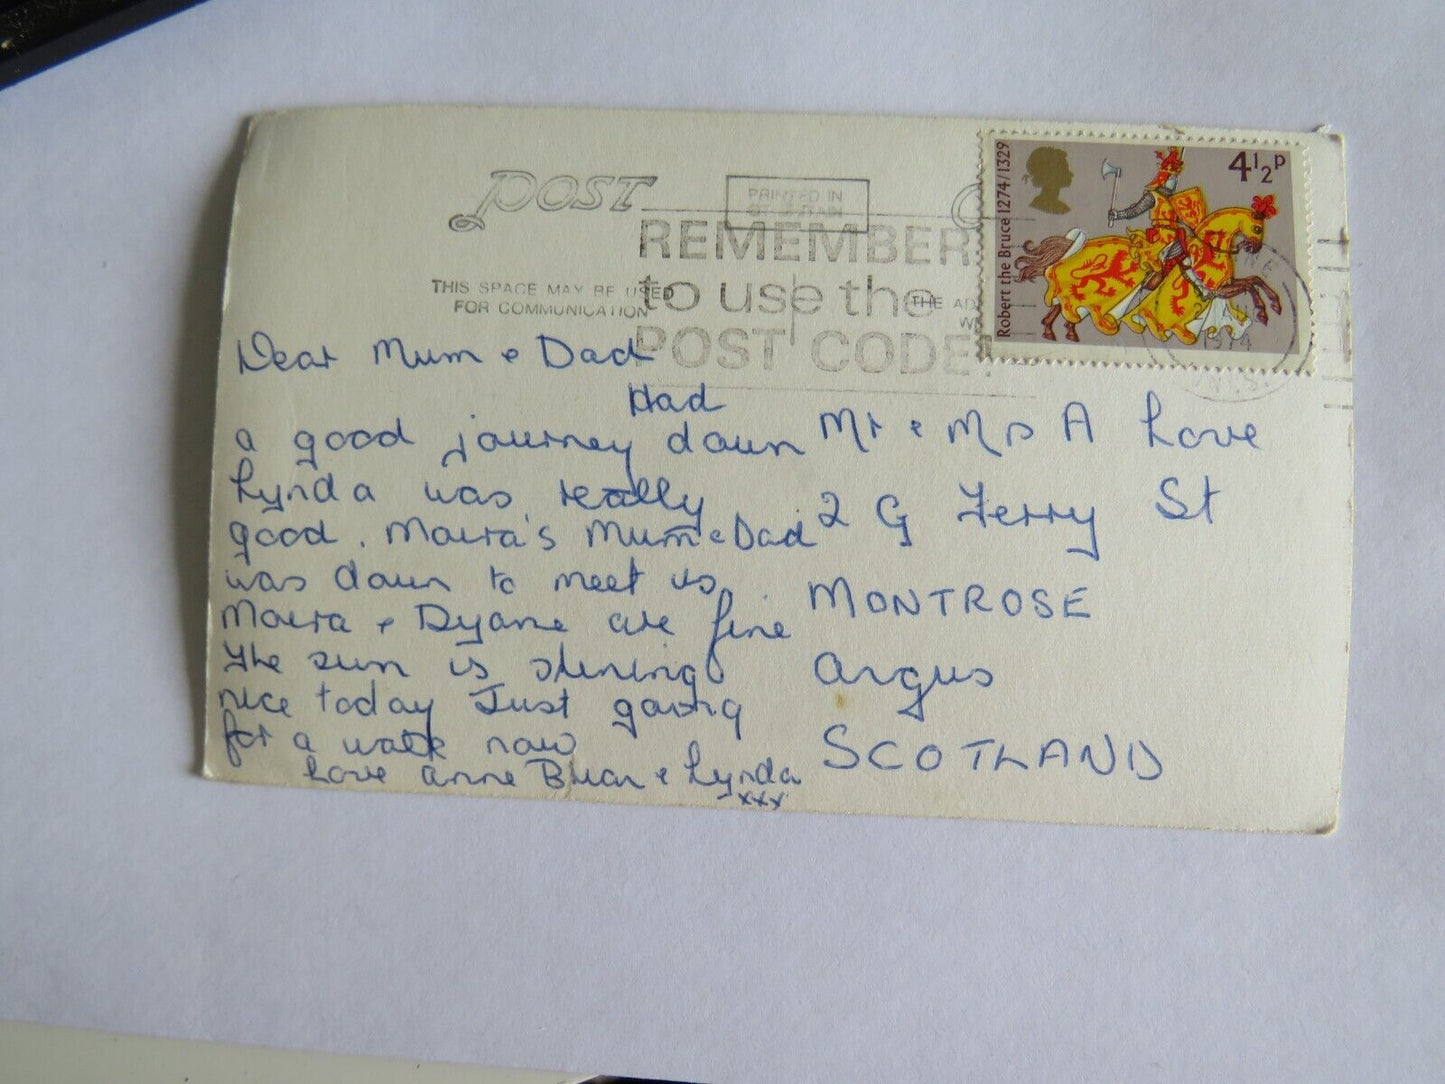 POST
PRINTED IN
REMEMBER
to use the
POST CODE!
THIS SPACE MAY BE USED
FOR COMMUNICATION
THE AD
Robert the Bruce 1274/1329
4½P
1974
Dear Mum & Dad
Had
a good journey down
Lynda was really
good. Moira's Mum & Dad
was down to meet us.
Moira & Dyane are fine
The sun is shining
nice today Just going
for a walk now
Love Anne Brian & Lynda
xxx
Mr & Mrs A Love
2 G Ferry St
MONTROSE
Angus
SCOTLAND